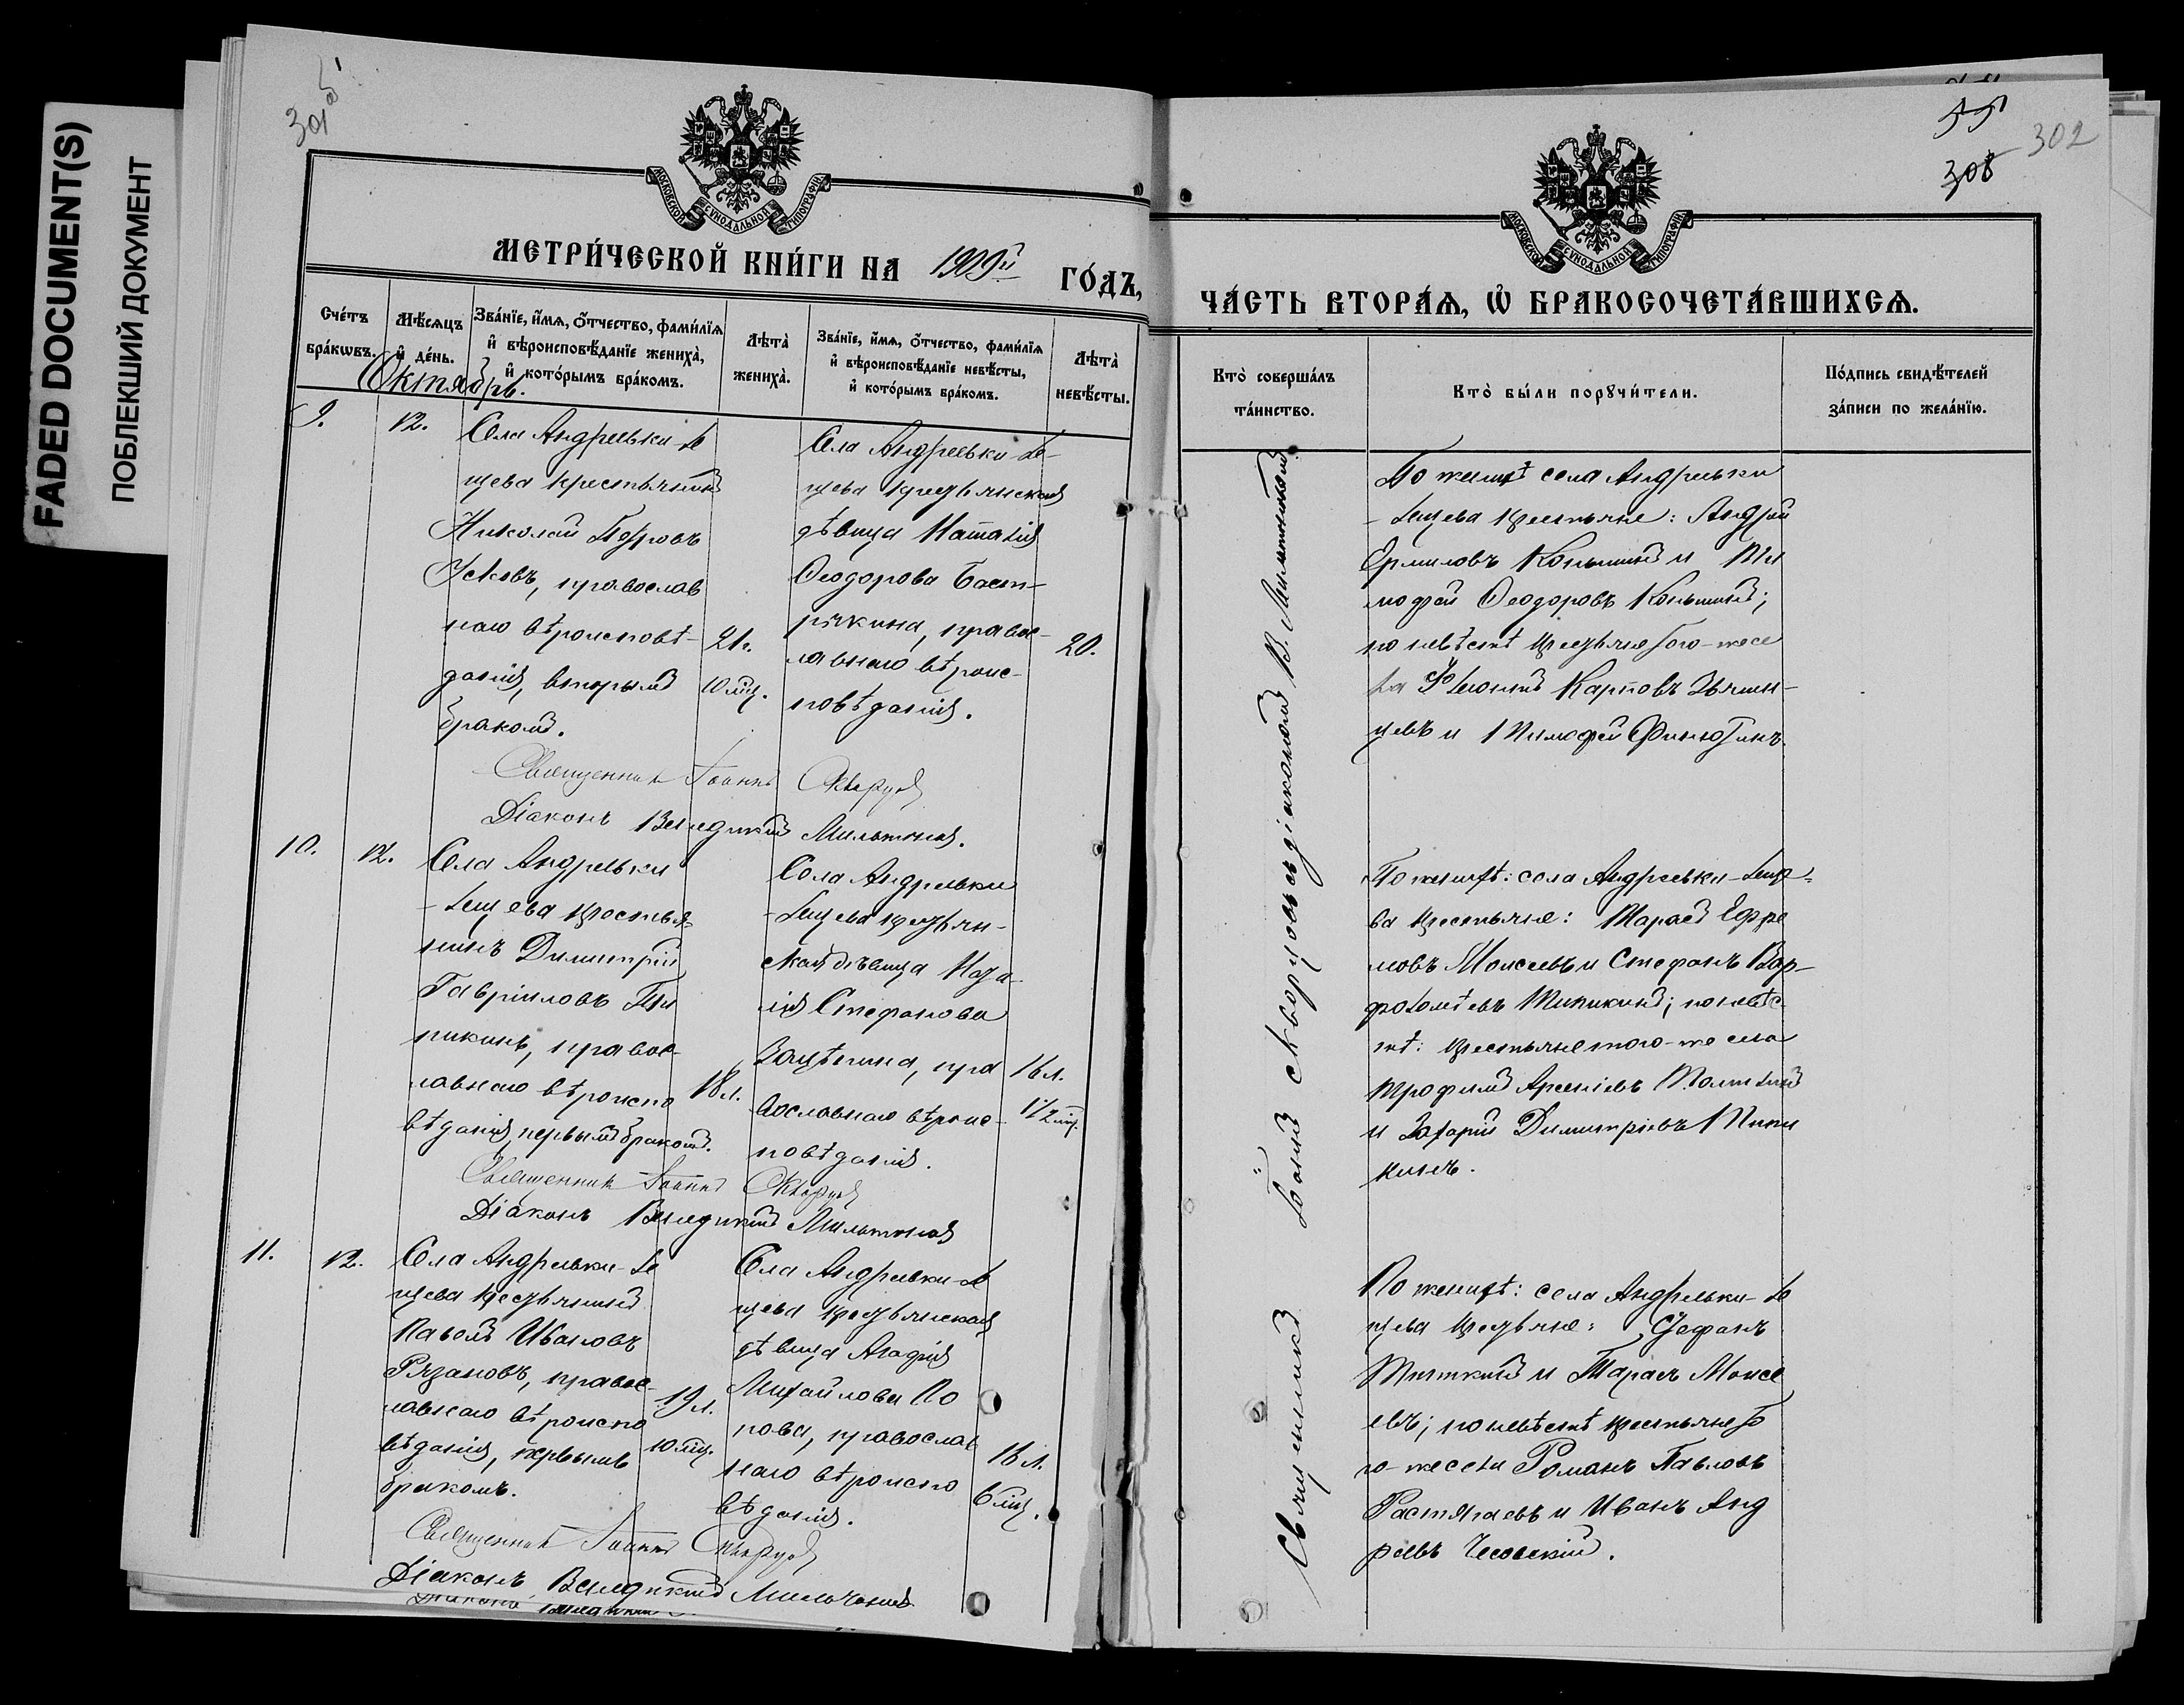 FADED DOCUMENT(S)
ПОБЛЕКШИЙ ДОКУМЕНТ
МОСКОВСКОЙ СУНОДАЛЬНОЙ ТИПОГРАФІИ
МЕТРИ́ЧЕСКОЙ КНИ́ГИ НА 1909й ГО́ДЪ,
Сче́тъ бра́кѡвъ.
Мѣ́сяцъ и҆ де́нь.
Зва́нїе, и҆́мѧ, о҆́тчество, фами́лїѧ и҆ вѣроисповѣ́данїе жениха̀, и҆ кото́рымъ бра́комъ.
Лѣта̀ жениха̀.
Зва́нїе, и҆́мѧ, о҆́тчество, фами́лїѧ и҆ вѣроисповѣ́данїе невѣ́сты, и҆ кото́рымъ бра́комъ.
Лѣта̀ невѣ́сты.
Октябрь.
9.
12.
Села Андреевки-Ле
щева крестьянинъ
Николай Петровъ
Усковъ, православ
наго вѣроисповѣ-
данія, вторымъ
бракомъ.
21 г.
10 мц.
Села Андреевки-Ле-
щева крестьянская
дѣвица Наталія
Ѳеодорова Баст-
рыкина, правос-
лавнаго вѣроис-
повѣданія.
20.
Священникъ Іоаннъ Скворцовъ
Діаконъ Венедиктъ Мильтоновъ.
10.
12.
Села Андреевки
-Лещева крестья-
нинъ Димитрій
Гавріиловъ Ти
пикинъ, правос-
лавнаго вѣроиспо
вѣданія, первымъ бракомъ.
18 л.
Села Андреевки
-Лещева крестьян-
ская дѣвица Ната-
лія Стефанова
Зацѣпина, пра
вославнаго вѣроис-
повѣданія.
16 л.
1 1/2 мц.
Священникъ Іоаннъ Скворцовъ
Діаконъ Венедиктъ Мильтоновъ
11.
12.
Села Андреевки-Ле
щева крестьянинъ
Павелъ Ивановъ
Рязановъ, правос-
лавнаго вѣроиспо
вѣданія, первымъ
бракомъ.
19 л.
10 мц.
Села Андреевки-Ле
щева крестьянская
дѣвица Агафія
Михайлова По
пова, православ
наго вѣроиспо
вѣданія.
16 л.
6 мц.
Священникъ Іоаннъ Скворцовъ
Діаконъ Венедиктъ Мильтоновъ
302
МОСКОВСКОЙ СУНОДАЛЬНОЙ ТИПОГРАФІИ
ЧА́СТЬ ВТОРА́Ѧ, Ѡ҆ БРАКОСОЧЕТА́ВШИХСѦ.
Кто̀ соверша́лъ та́инство.
Кто̀ бы́ли порꙋчи́тели.
По́дпись свидѣ́телей за́писи по жела́нїю.
Священникъ Іоаннъ Скворцовъ съ діакономъ В. Мильтоновымъ.
По женихѣ села Андреевки
-Лещева крестьяне: Андрей
Ермиловъ Коньшинъ и Ти
мофей Ѳеодоровъ Коньшинъ;
по невѣстѣ крестьяне того-же се
ла Леонтій Карповъ Звягин-
цевъ и Тимофей Финютинъ.
По женихѣ: села Андреевки-Леще-
ва крестьяне: Тарасъ Ефре
мовъ Моисеевъ и Стефанъ Вар-
фоломѣевъ Типикинъ; по невѣс-
тѣ: крестьяне того-же села
Трофимъ Арсеніевъ
и Захарій Димитріевъ Типи
кинъ.
По женихѣ: села Андреевки-Ле
щева крестьяне: Стефанъ
и Тарасъ Моисе
евъ; по невѣстѣ крестьяне то
го-же села Романъ Павловъ
Растягаевъ и Иванъ Анд
реевъ Чесовскій.